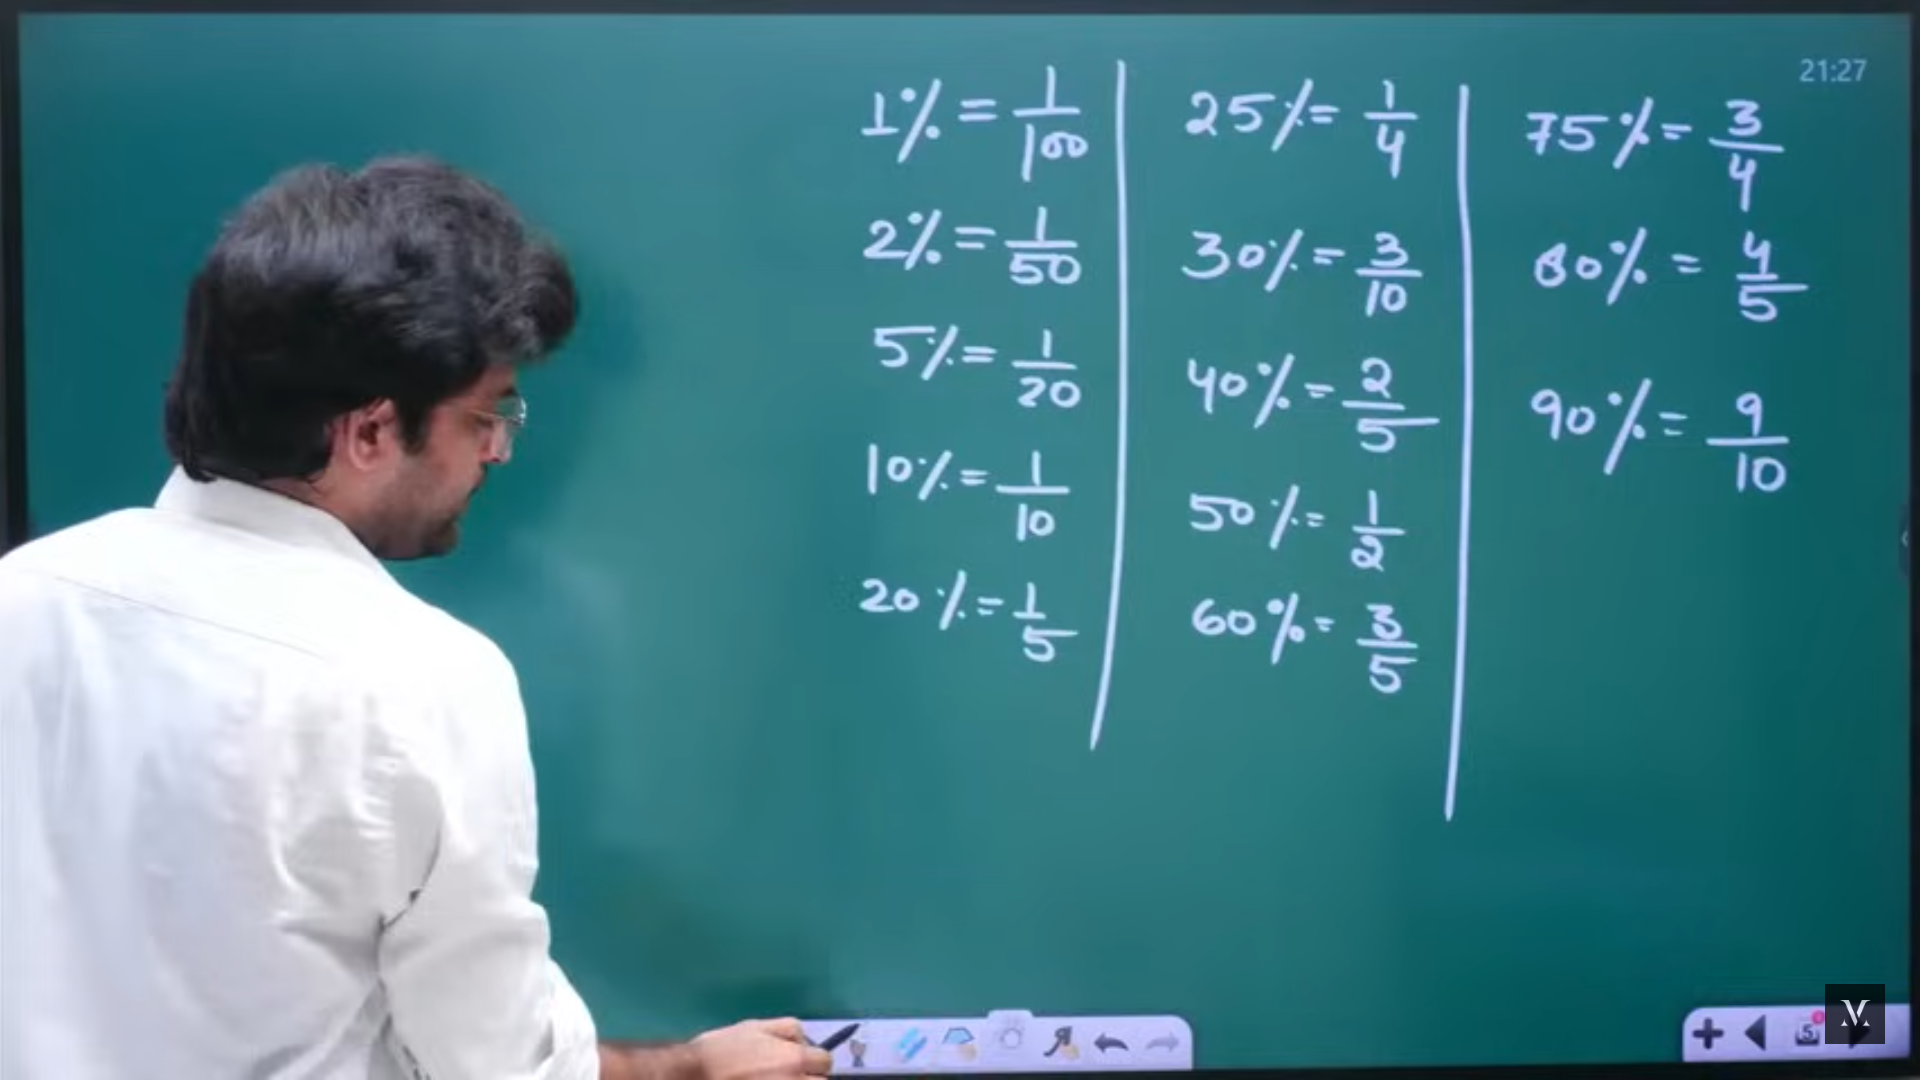 21:27
1% = 1/100
2% = 1/50
5% = 1/20
10% = 1/10
20% = 1/5
25% = 1/4
30% = 3/10
40% = 2/5
50% = 1/2
60% = 3/5
75% = 3/4
80% = 4/5
90% = 9/10
5